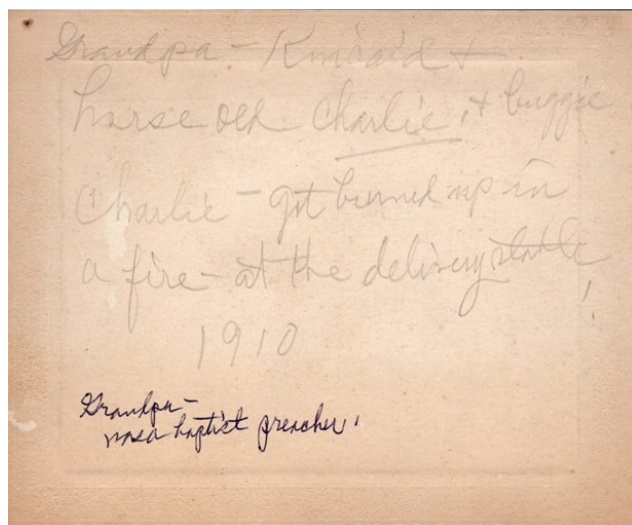 Grandpa - Kincaid +
horse old Charlie, + buggie
Charlie - got burned up in
a fire - at the delivery stable!
1910
Grandpa -
was a baptist preacher.